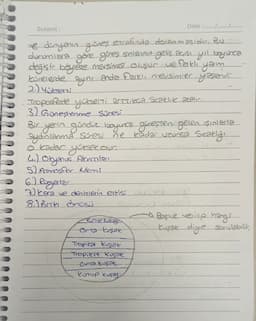 Date
ve dünyanın güneş etrafında dolanmasıdır. Bu
durumlara göre güneş ışınlarının geliş açısı yıl boyunca
değişir böylece mevsimler oluşur ve farklı yarım
kürelerde aynı anda farklı mevsimler yaşanır.
2.) Yükselti
Troposferde yükselti arttıkça sıcaklık azalır.
3.) Güneşlenme Süresi
Bir yerin gündüz boyunca güneşten gelen ışınlarla
aydınlanma süresi ne kadar uzunsa sıcaklığı
o kadar yüksek olur.
4.) Okyanus Akıntıları
5.) Atmosfer Nemi
6.) Rüzgarlar
7.) Kara ve denizlerin etkisi
8.) Bitki örtüsü
Kutup kuşağı
Orta kuşak
Tropikal kuşak
Tropikal kuşak
Orta kuşak
Kutup kuşağı
Boşluk verilip hangi
kuşak diye sorulabilir.